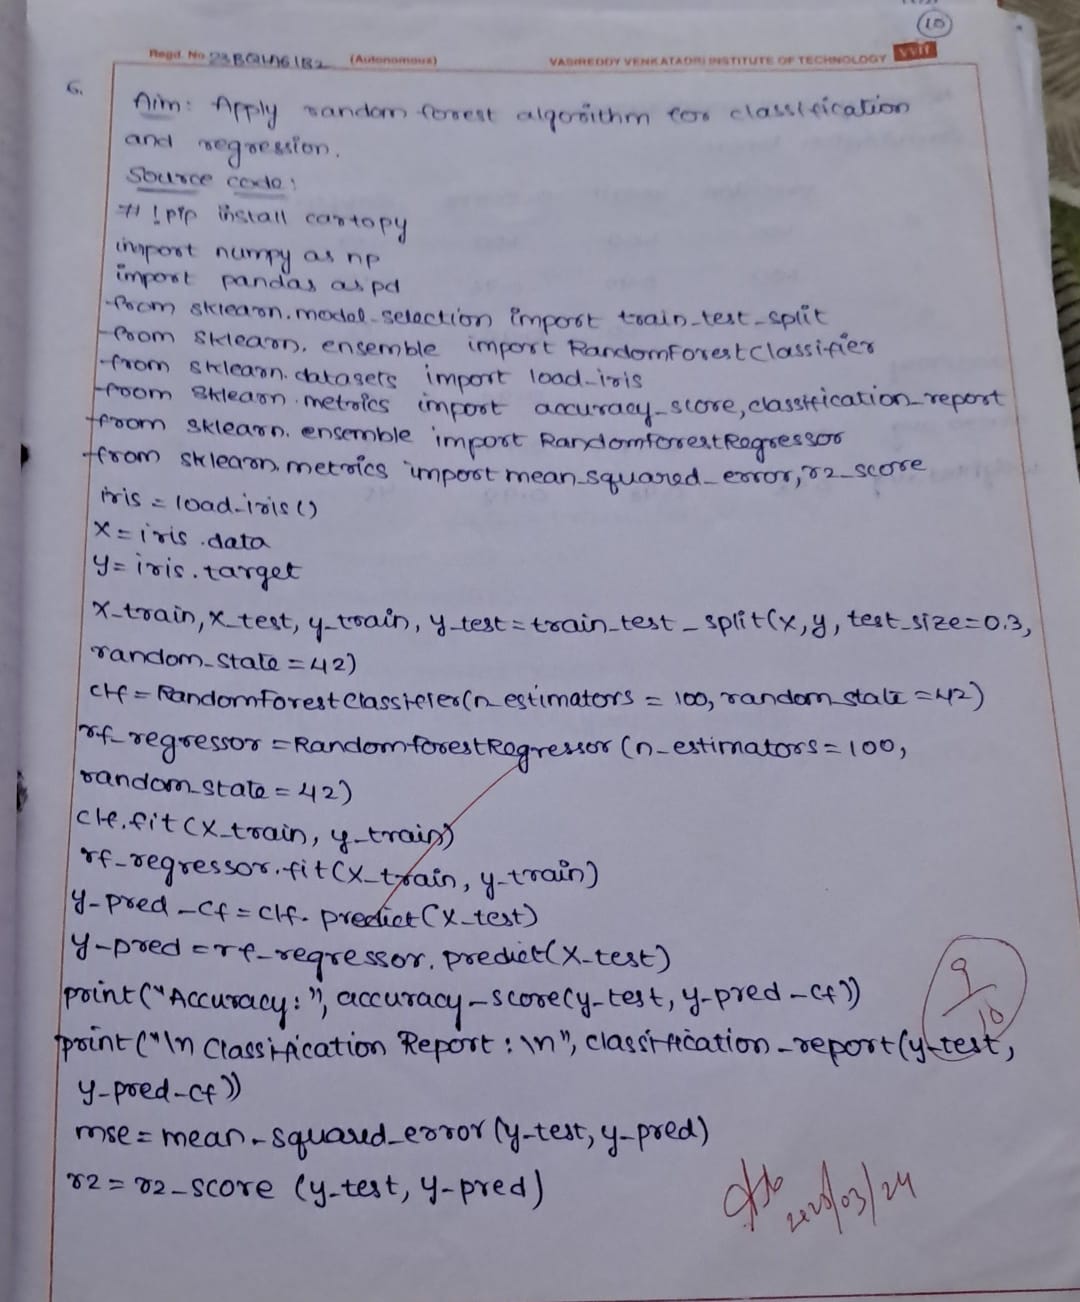 10
Regd. No. 23BQ1A61B2 (Autonomous) VASIREDDY VENKATADRI INSTITUTE OF TECHNOLOGY VVIT
6.
Aim: Apply random forest algorithm for classification
and regression.
Source code:
# !pip install cartopy
import numpy as np
import pandas as pd
from sklearn.model_selection import train_test_split
from sklearn.ensemble import RandomForestClassifier
from sklearn.datasets import load_iris
from sklearn.metrics import accuracy_score, classification_report
from sklearn.ensemble import RandomForestRegressor
from sklearn.metrics import mean_squared_error, r2_score
iris = load_iris()
X = iris.data
y = iris.target
X_train, X_test, y_train, y_test = train_test_split(X, y, test_size=0.3,
random_state = 42)
clf = RandomForestClassifier(n_estimators = 100, random_state = 42)
rf_regressor = RandomForestRegressor (n_estimators = 100,
random_state = 42)
clf.fit(X_train, y_train)
rf_regressor.fit(X_train, y_train)
y_pred_cf = clf.predict(X_test)
y_pred = rf_regressor.predict(X_test)
print("Accuracy:", accuracy_score(y_test, y_pred_cf))
9/10
print("\n Classification Report : \n", classification_report(y_test,
y_pred_cf))
mse = mean_squared_error (y_test, y_pred)
r2 = r2_score (y_test, y_pred)